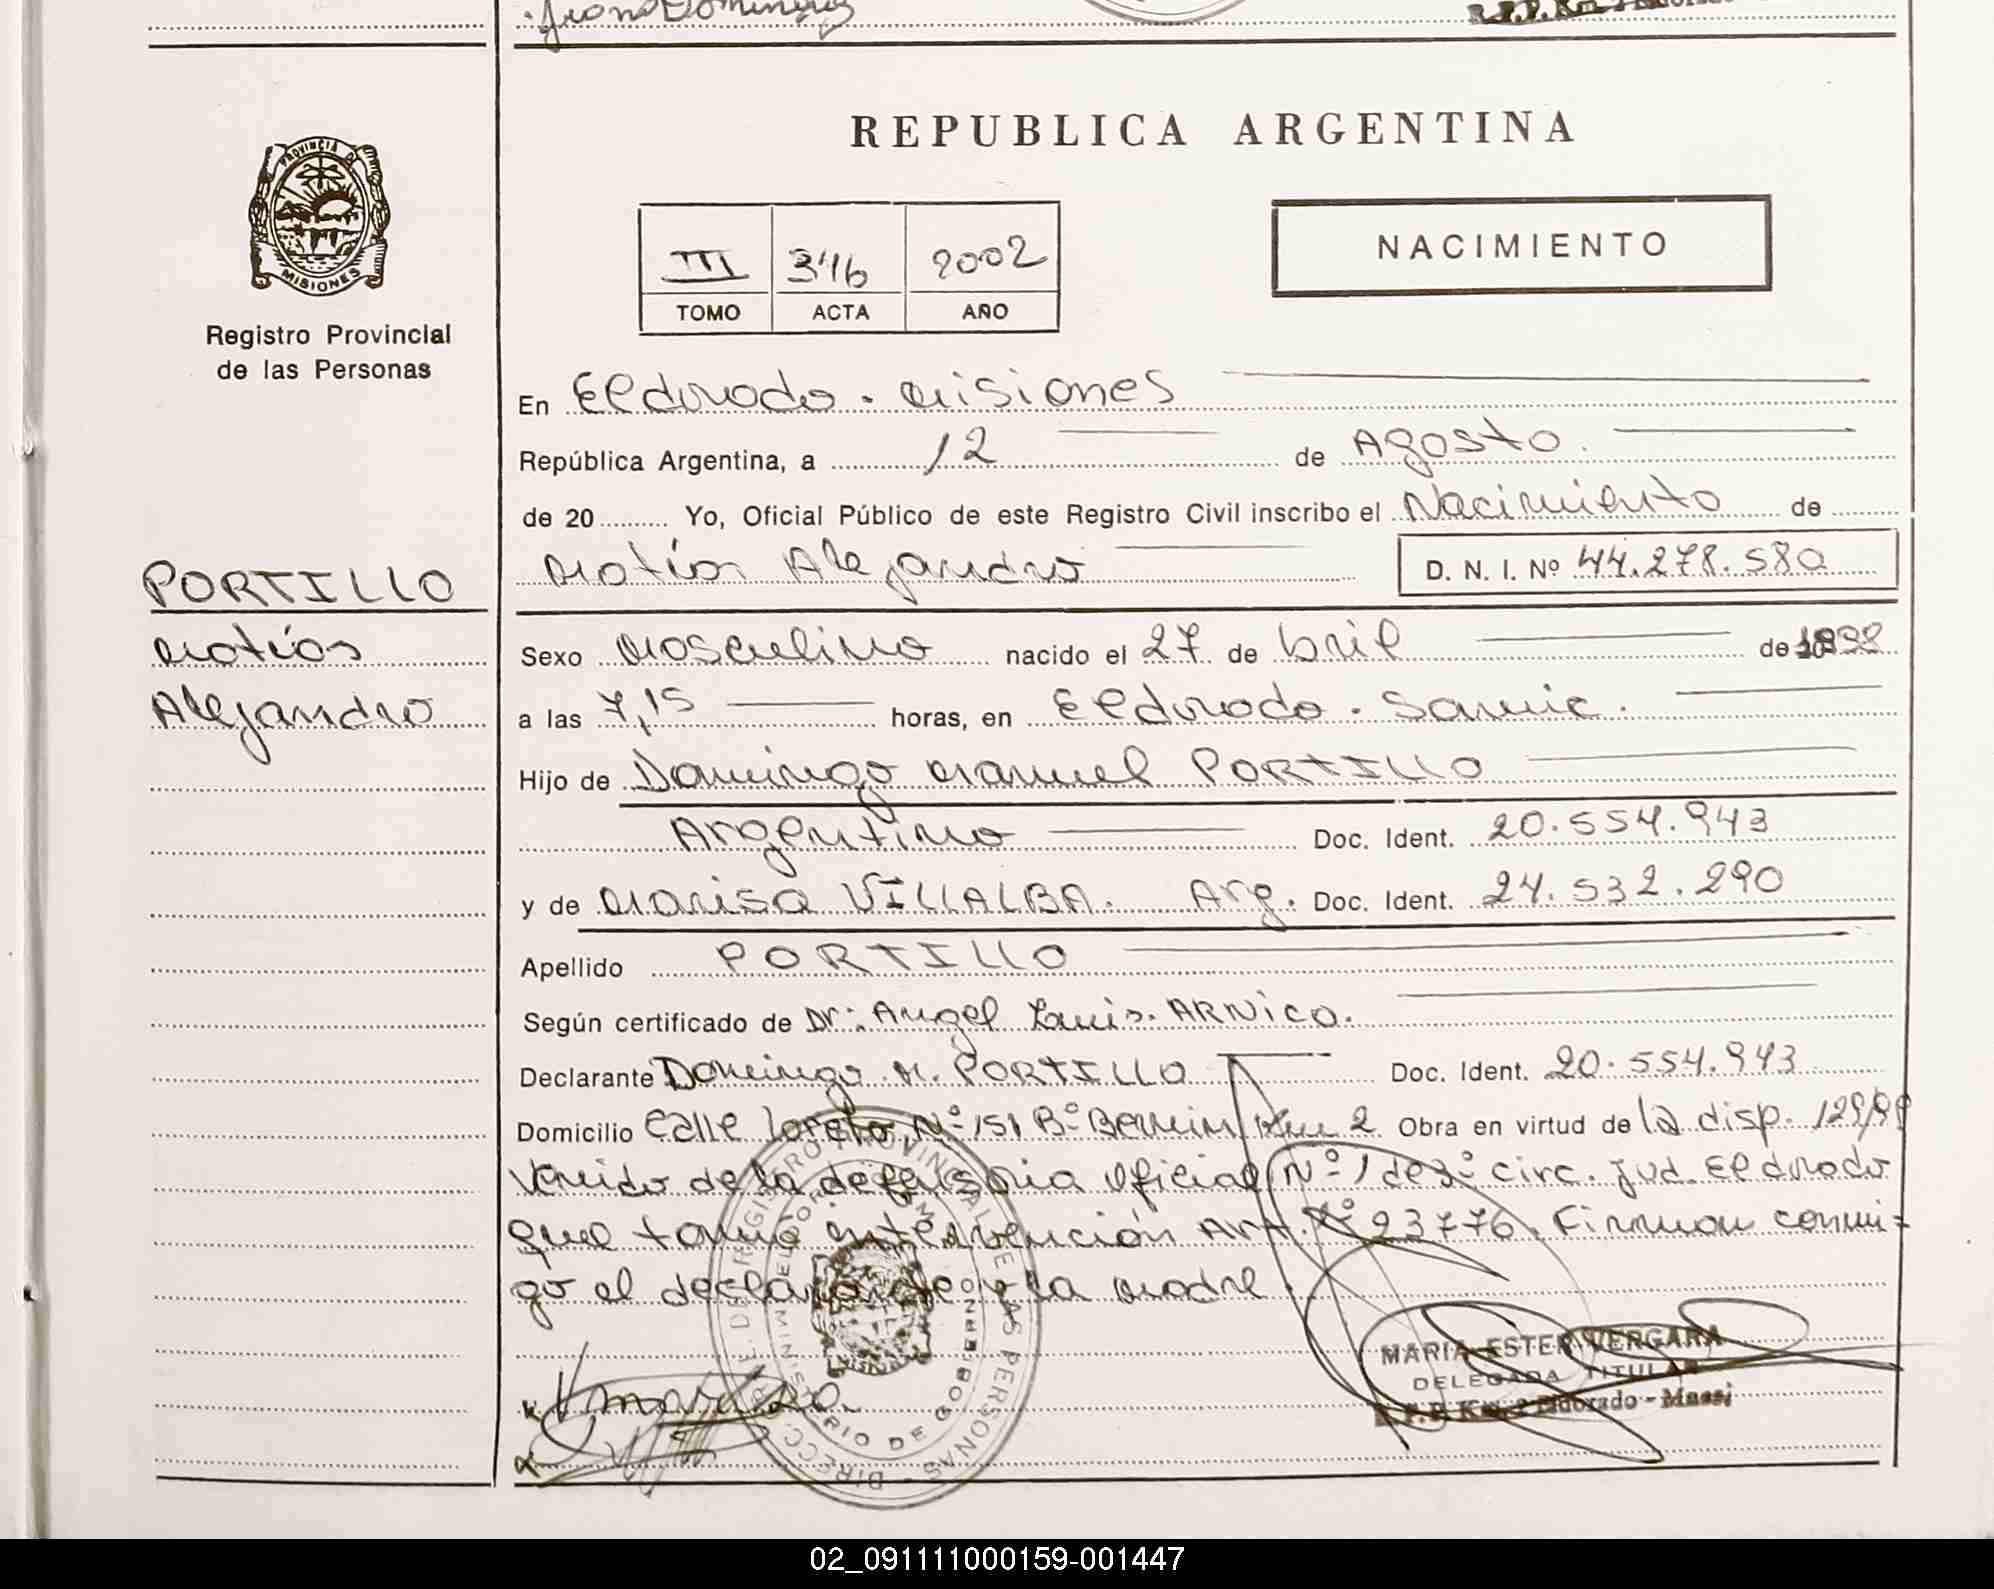 Juana Dominguez
PROVINCIA DE
MISIONES
Registro Provincial
de las Personas
REPUBLICA ARGENTINA
III 346 2002
TOMO ACTA AÑO
NACIMIENTO
En Eldorado. Misiones
República Argentina, a 12 de Agosto.
de 20 Yo, Oficial Público de este Registro Civil inscribo el Nacimiento de
Matías Alejandro D. N. I. Nº 44.278.580
PORTILLO
Matías
Alejandro
Sexo Masculino nacido el 27 de bril de
a las 7,15 horas, en Eldorado. Samic.
Hijo de Domingo Manuel PORTILLO
Argentino Doc. Ident. 20.554.943
y de Marisa VILLALBA. Arg. Doc. Ident. 24.532.290
Apellido PORTILLO
Según certificado de Dr: Angel Luis. ARNICO.
Declarante Domingo M. PORTILLO Doc. Ident. 20.554.943
Domicilio Calle Loreto Nº 151 Bº Km 2 Obra en virtud de la disp.
Venido de la defensoria Oficial Nº 1 de 3º circ. Jud. Eldorado
que tomó intervención Art. Nº 23776. Firman conmi-
go el declarante y la Madre.
DIRECC. GRAL. DEL REGISTRO PROVINCIAL DE LAS PERSONAS
MINISTERIO DE GOBIERNO
MISIONES
Marisa
MARIA ESTER VERGARA
DELEGADA TITULAR
R.P.P. Km. 2 Eldorado - Mnes
02_091111000159-001447